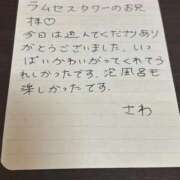 ラムセスタワーのお兄
様♡
今日は遊んでくださりあり
がとうございました。いっ
ぱいかわいがってくれてう
れしかったです。泡風呂も
楽しかったです。
さわ